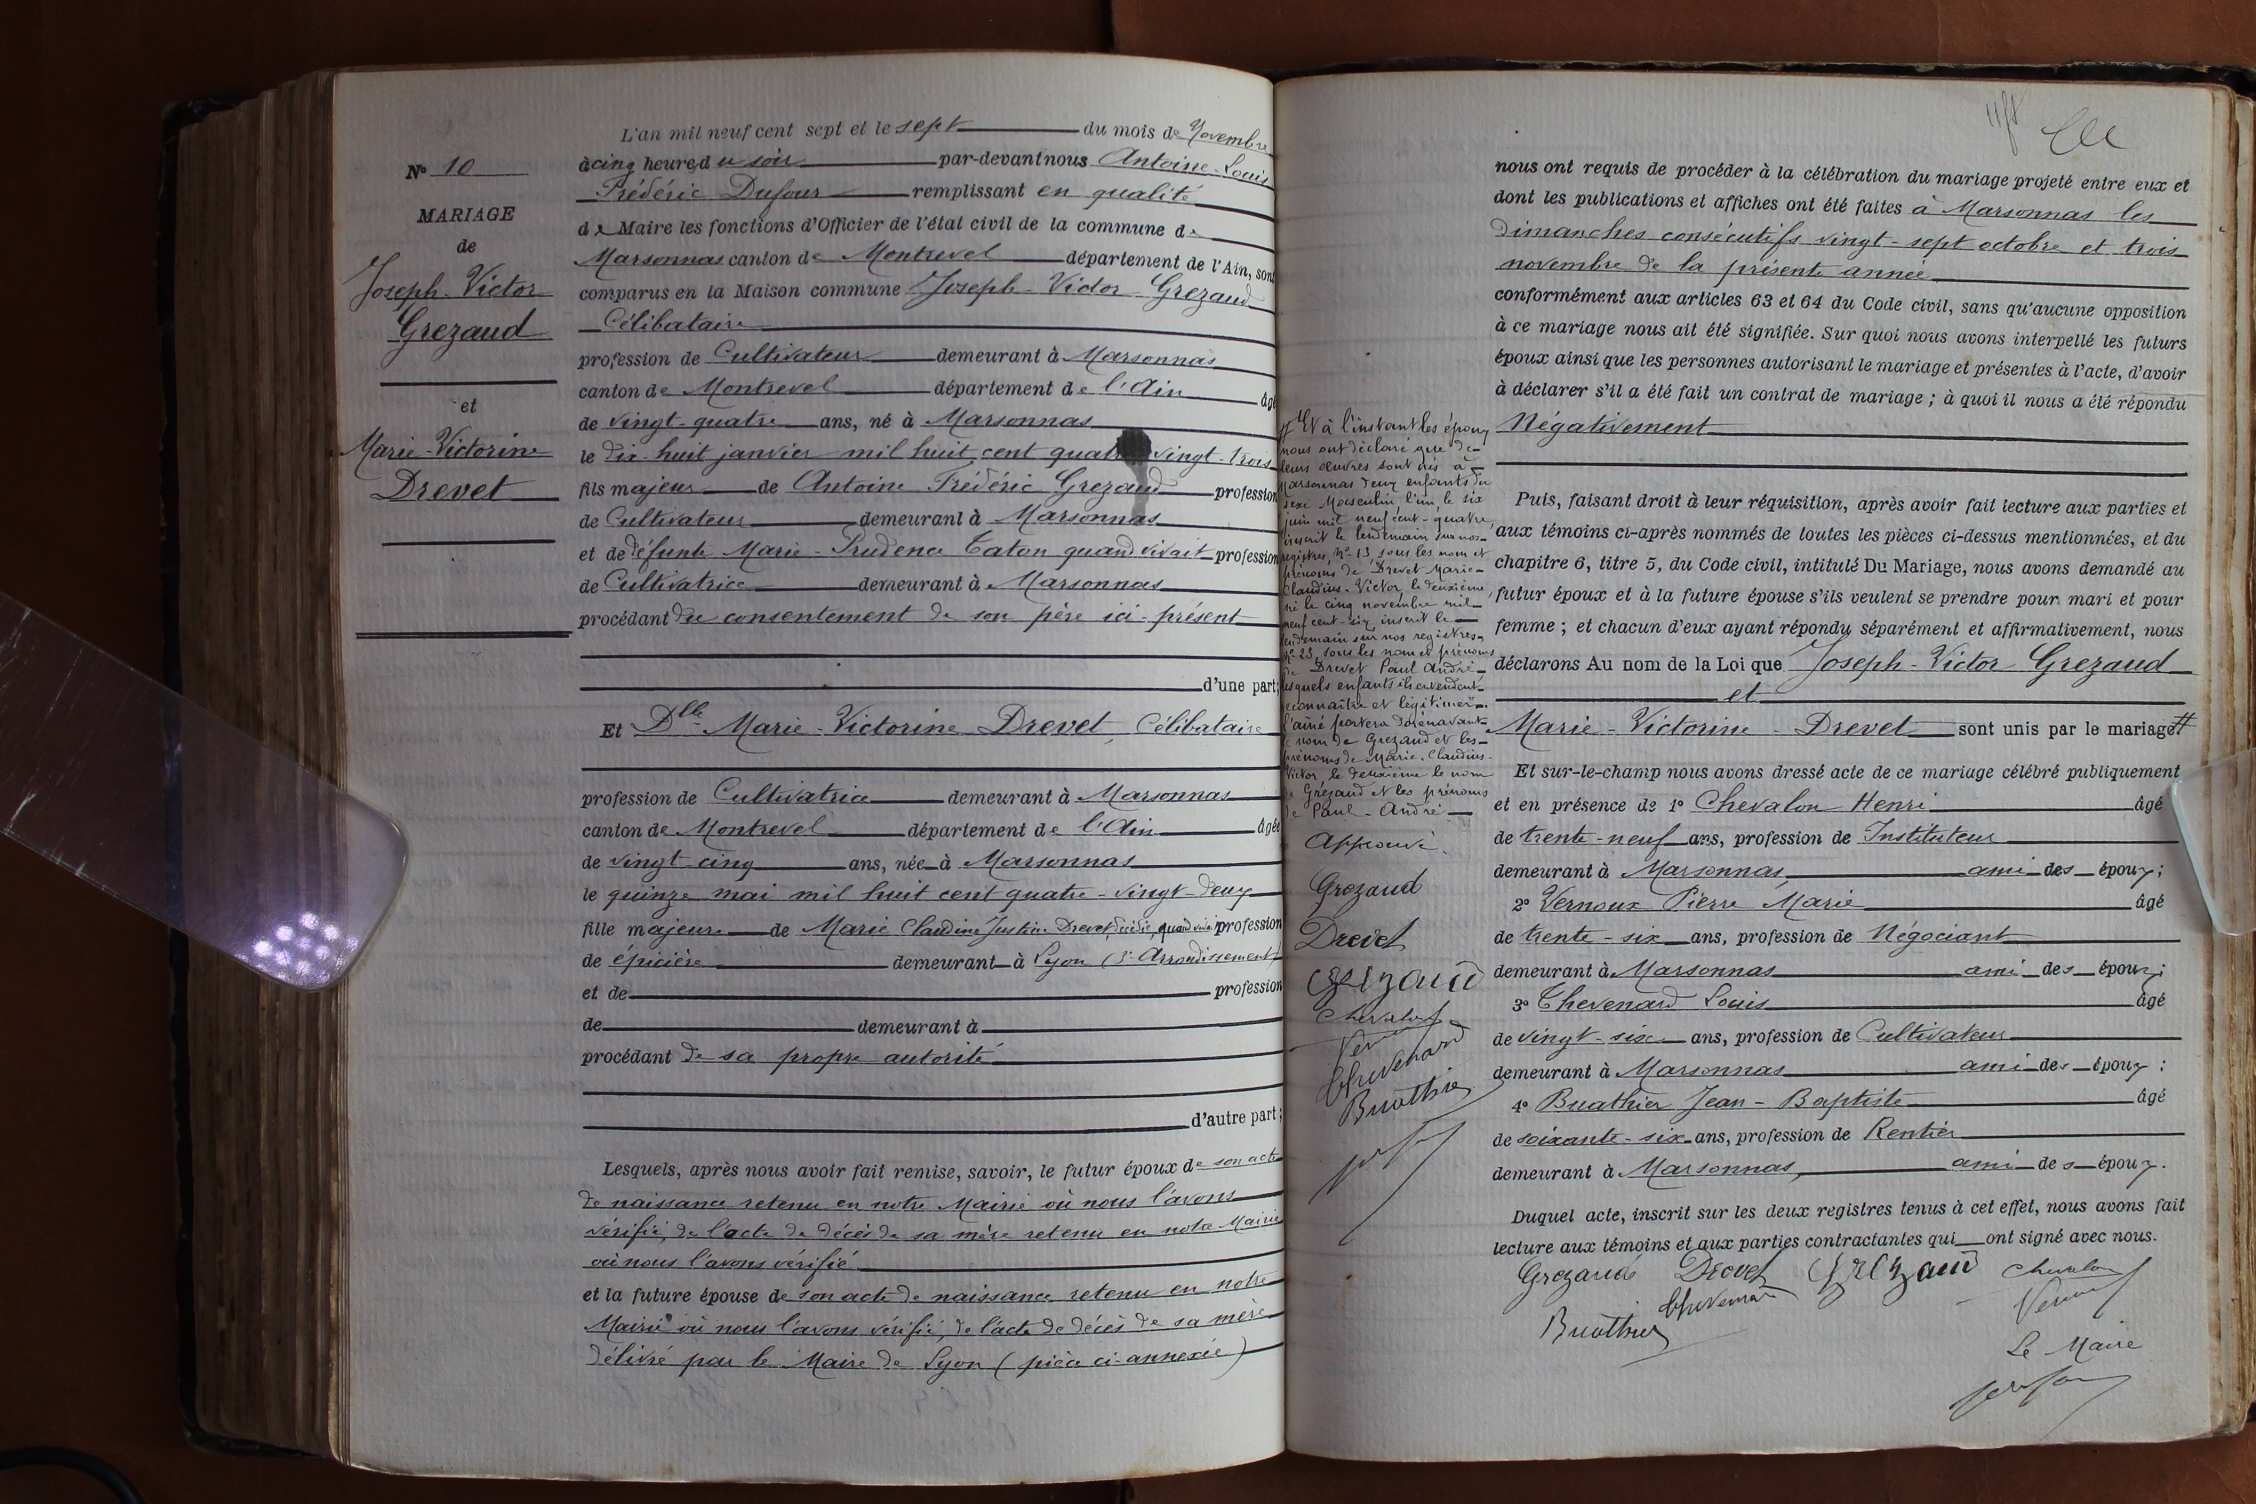 L'an mil neuf cent sept et le sept du mois de Novembre
à cinq heures du soir par-devant nous Antoine-Louis
Frédéric Dufour remplissant en qualité
de Maire les fonctions d'Officier de l'état civil de la commune de
Marsonnas canton de Montrevel département de l'Ain, sont
comparus en la Maison commune Joseph-Victor Grezaud
Célibataire
profession de Cultivateur demeurant à Marsonnas
canton de Montrevel département de l'Ain âgé
de vingt-quatre ans, né à Marsonnas
le dix-huit janvier mil huit cent quatre vingt-trois
fils majeur de Antoine Frédéric Grezaud profession
de Cultivateur demeurant à Marsonnas
et de défunte Marie-Prudence Caton quand vivait profession
de Cultivatrice demeurant à Marsonnas
procédant du consentement de son père ici-présent
d'une part;
Et Dlle Marie-Victorine Drevet, Célibataire
profession de Cultivatrice demeurant à Marsonnas
canton de Montrevel département de l'Ain âgée
de vingt-cinq ans, née à Marsonnas
le quinze mai mil huit cent quatre-vingt-deux
fille majeure de Marie Claudine Justine Drevet, décédée, quand vivait profession
de épicière demeurant à Lyon (3e Arrondissement)
et de profession
de demeurant à
procédant de sa propre autorité
d'autre part;
Lesquels, après nous avoir fait remise, savoir, le futur époux de son acte
de naissance retenu en notre Mairie où nous l'avons
vérifié, de l'acte de décès de sa mère retenu en notre Mairie
où nous l'avons vérifié
et la future épouse de son acte de naissance retenu en notre
Mairie où nous l'avons vérifié, de l'acte de décès de sa mère
délivré par le Maire de Lyon (pièce ci-annexée)
No 10
MARIAGE
de
Joseph-Victor
Grezaud
et
Marie-Victorine
Drevet
nous ont requis de procéder à la célébration du mariage projeté entre eux et
dont les publications et affiches ont été faites à Marsonnas les
dimanches consécutifs vingt-sept octobre et trois
novembre de la présente année
conformément aux articles 63 et 64 du Code civil, sans qu'aucune opposition
à ce mariage nous ait été signifiée. Sur quoi nous avons interpellé les futurs
époux ainsi que les personnes autorisant le mariage et présentes à l'acte, d'avoir
à déclarer s'il a été fait un contrat de mariage ; à quoi il nous a été répondu
Négativement
Puis, faisant droit à leur réquisition, après avoir fait lecture aux parties et
aux témoins ci-après nommés de toutes les pièces ci-dessus mentionnées, et du
chapitre 6, titre 5, du Code civil, intitulé Du Mariage, nous avons demandé au
futur époux et à la future épouse s'ils veulent se prendre pour mari et pour
femme ; et chacun d'eux ayant répondu séparément et affirmativement, nous
déclarons Au nom de la Loi que Joseph-Victor Grezaud
et
Marie-Victorine-Drevet sont unis par le mariage #
Et sur-le-champ nous avons dressé acte de ce mariage célébré publiquement
et en présence de 1o Chevalon Henri âgé
de trente-neuf ans, profession de Instituteur
demeurant à Marsonnas, ami des époux;
2o Vernoux Pierre Marie âgé
de trente-six ans, profession de Négociant
demeurant à Marsonnas ami des époux;
3o Thevenard Louis âgé
de vingt-six ans, profession de Cultivateur
demeurant à Marsonnas ami des époux :
4o Buathier Jean-Baptiste âgé
de soixante-six ans, profession de Rentier
demeurant à Marsonnas, ami des époux.
Duquel acte, inscrit sur les deux registres tenus à cet effet, nous avons fait
lecture aux témoins et aux parties contractantes qui ont signé avec nous.
Grezaud Drevet Grezaud Chevalon
Thevenard Vernoux
Buathier
Le Maire
# Et à l'instant les époux
nous ont déclaré que de
leurs œuvres sont nés à
Marsonnas deux enfants du
sexe Masculin, l'un, le six
juin mil neuf cent-quatre,
inscrit le lendemain sur nos
registres, No 13, sous les nom et
prénoms de Drevet Marie-
Claudius-Victor, le deuxième,
né le cinq novembre mil
neuf cent-six, inscrit le
lendemain sur nos registres
No 23, sous les nom et prénoms
de Drevet Paul André,
lesquels enfants ils entendent
reconnaître et légitimer.
L'aîné portera dorénavant
le nom de Grezaud et les
prénoms de Marie-Claudius-
Victor, le deuxième le nom
de Grézaud et les prénoms
de Paul-André
Approuvé.
Grezaud
Drevet
Grezaud
Chevalon
Thevenard
Buathier